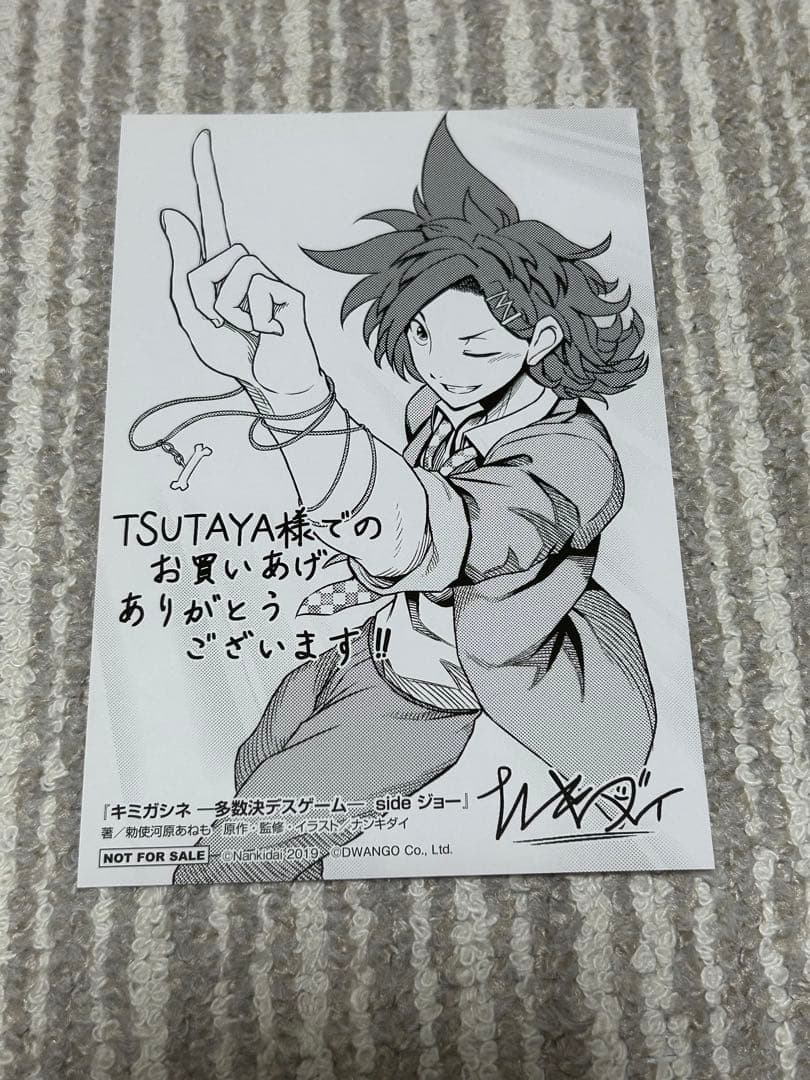 TSUTAYA様での
お買いあげ
ありがとう
ございます!!
『キミガシネ ―多数決デスゲーム― side ジョー』
著/勅使河原あねも 原作・監修・イラスト/ナンキダイ
NOT FOR SALE ©Nankidai 2019 ©DWANGO Co., Ltd.
ナンキダイ